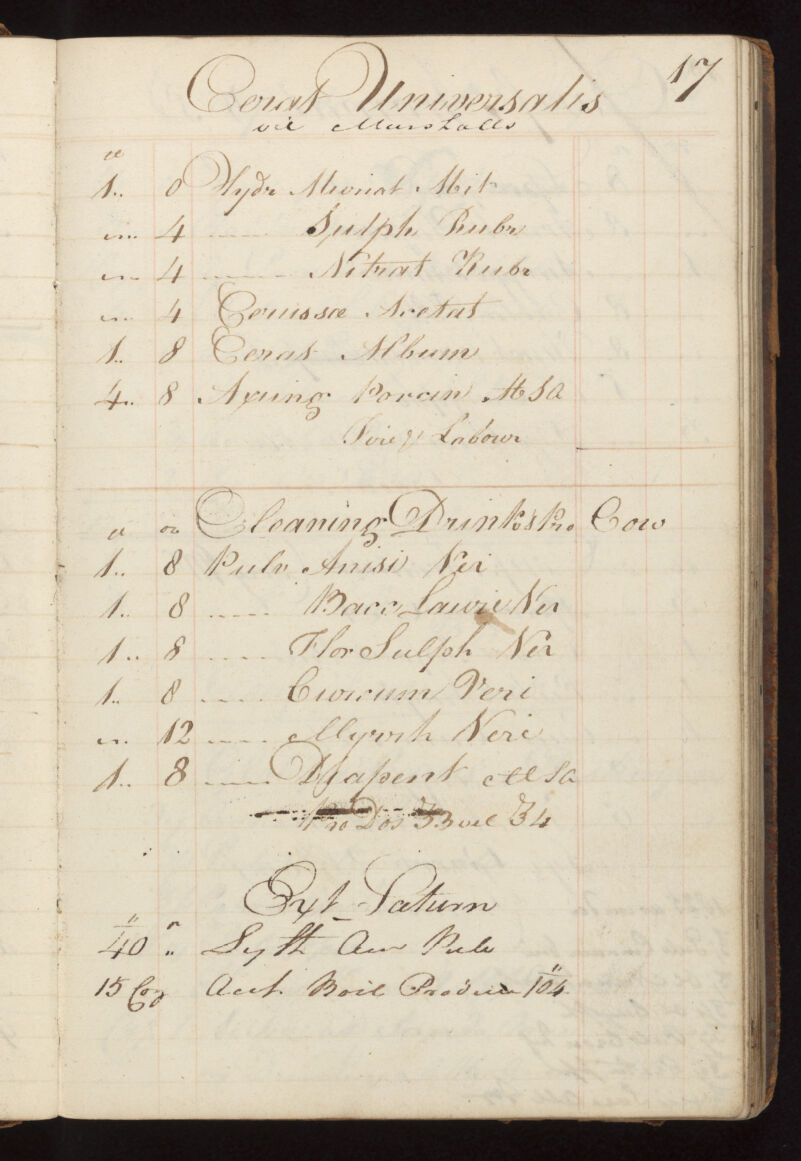 17
Cerat Universalis
vel Marshalls
lb
1.. 0 Hydr Muriat Mit
" .. 4 ..... Sulph Rubr
" .. 4 ..... Nitrat Rubr
" .. 4 Cerussæ Acetat
1.. 8 Cerat Album
4.. 8 Axung Porcin M SA
Labour
lb oz Cleaning Drinks Pro Cow
1.. 8 Pulv Anisi Ver
1.. 8 ..... Bacc Lauri Ver
1.. 8 ..... Flor Sulph Ver
1.. 8 ..... Curcum Veri
" .. 12 ..... Myrrh Veri
1.. 8 ..... Diapent M SA
Pro Dos ℥3 vel ℥4
Ext Saturn
40 " Lyth Aur Pulv
15 Cong Acet. Boil Produce 104